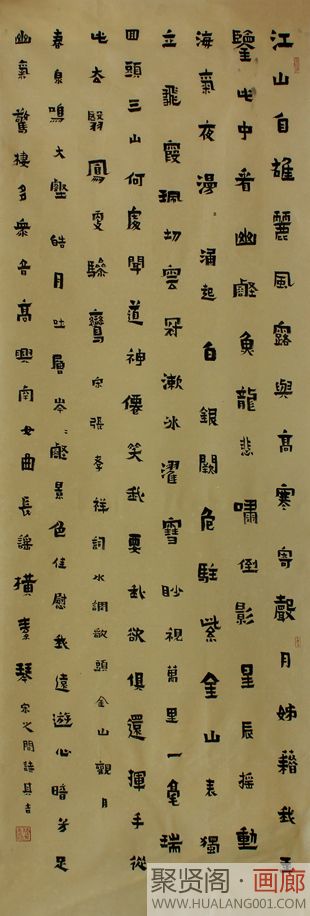 江山自雄麗風露與高寒寄聲月姊藉我玉
鑒此中看幽壑魚龍悲嘯倒影星辰摇動
海氣夜漫涌起白銀闕危駐紫金山表獨
立飛霞珮切雲冠漱冰濯雪眇視萬里一毫瑞
回頭三山何處聞道神僊笑我要我欲俱還揮手從
此去翳鳳更驂鸞 宋張孝祥詞水調歌頭金山觀月
春泉鳴大壑皓月吐層岑〻壑景色佳慰我遠遊心暗芳足
幽氣驚棲多衆音高興南山曲長謠橫素琴 宋之問詩其吉
聚贤阁·画廊
WWW.HUALANG001.COM